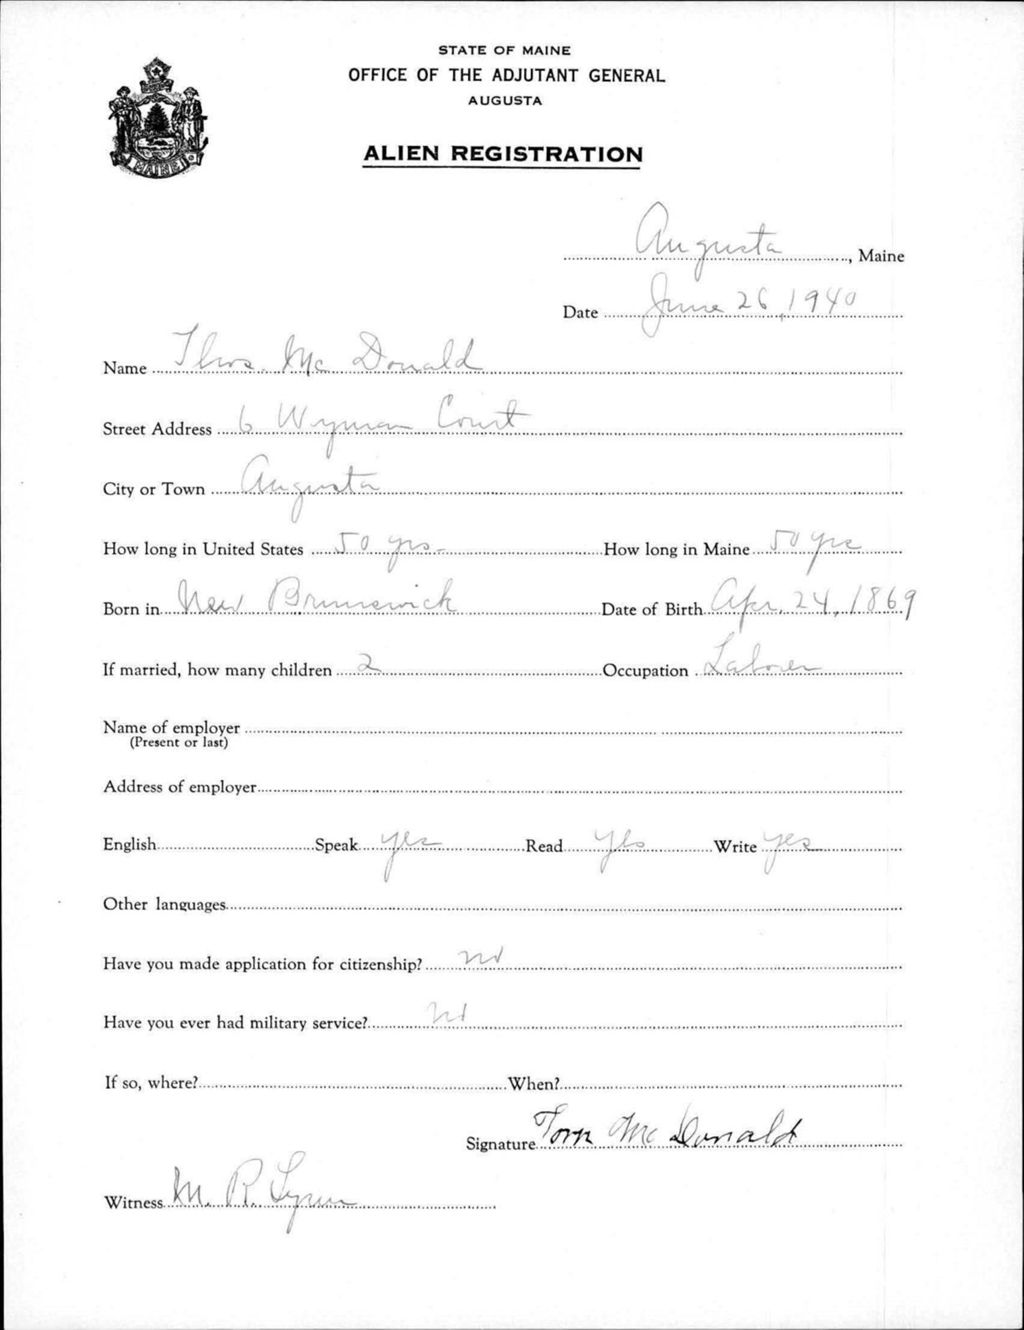 STATE OF MAINE
OFFICE OF THE ADJUTANT GENERAL
AUGUSTA
ALIEN REGISTRATION
MAINE
Augusta, Maine
Date June 26, 1940
Name Thos. Mc Donald
Street Address 6 Wyman Court
City or Town Augusta
How long in United States 50 yrs. How long in Maine 50 yrs
Born in New Brunswick Date of Birth Apr. 24, 1869
If married, how many children 2 Occupation Laborer
Name of employer
(Present or last)
Address of employer
English Speak yes Read yes Write yes
Other languages
Have you made application for citizenship? no
Have you ever had military service? no
If so, where? When?
Signature Tom Mc Donald
Witness M. R. Lynn